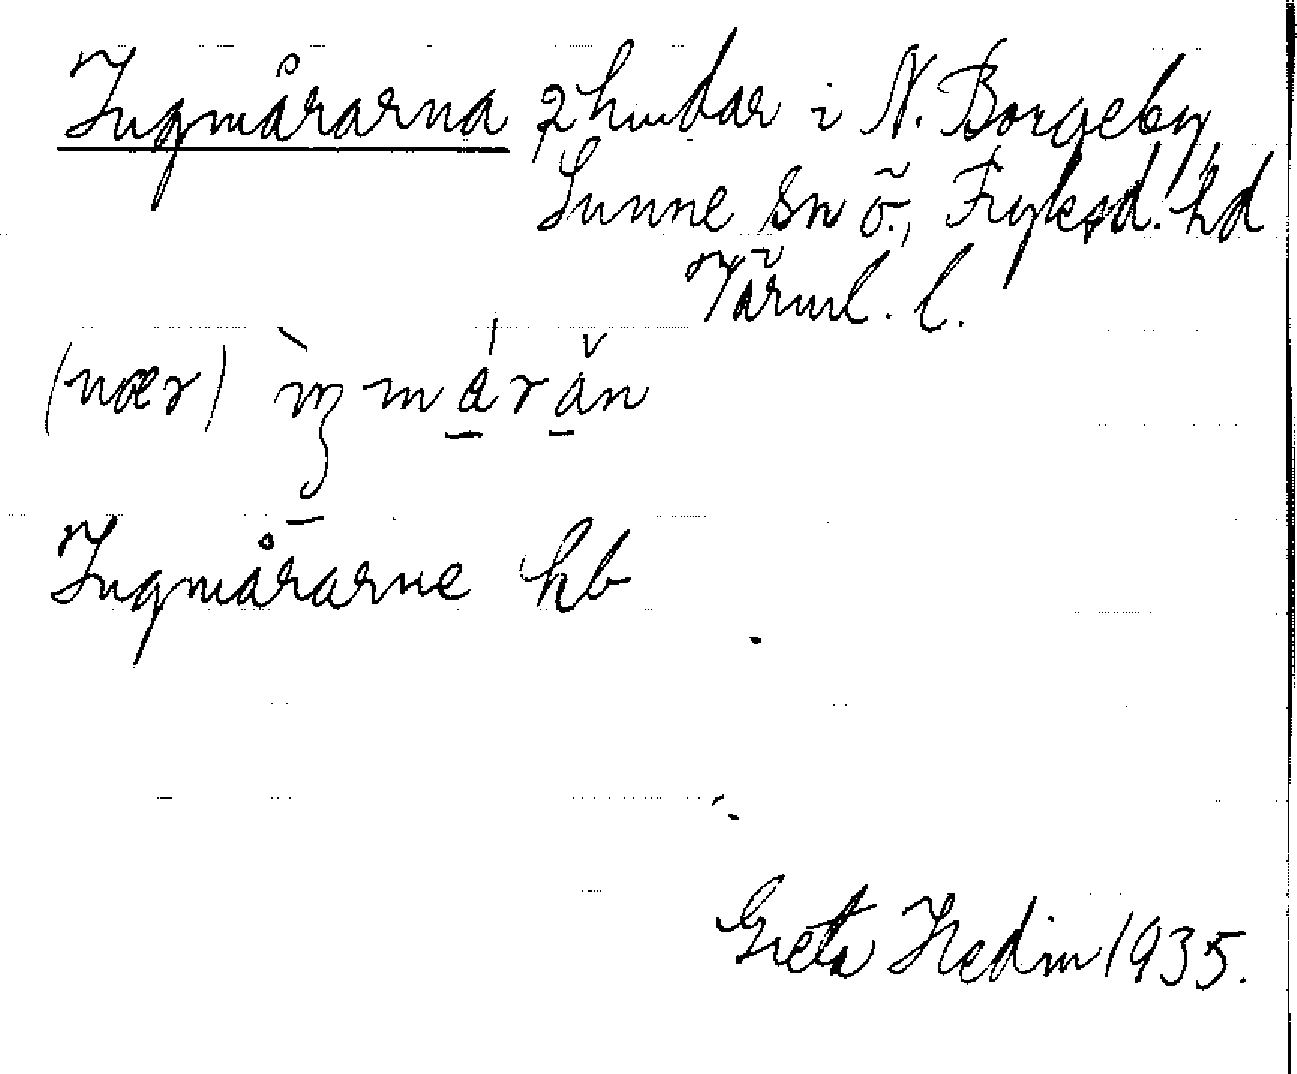 Ingmårarna 2 hmdar i N. Borgeby,
Sunne sn ö., Fryksd. hd
Värml. l.
(nær)
Ingmårarne hb
Greta Hedin 1935.